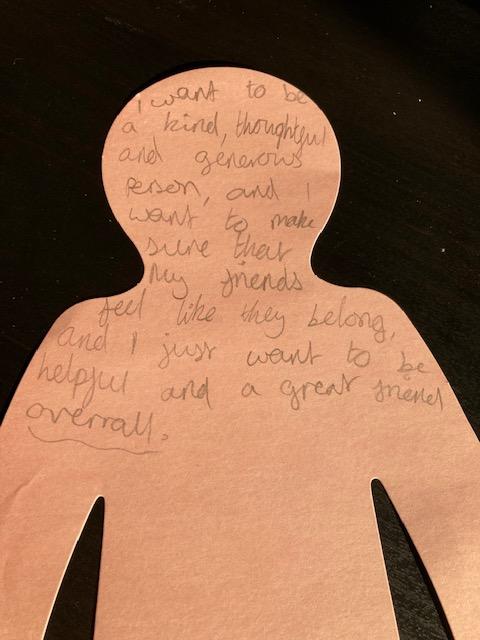 I want to be
a kind, thoughtful
and generous
person, and I
want to make
sure that
My friends
feel like they belong,
and I just want to be
helpful and a great friend
overrall.